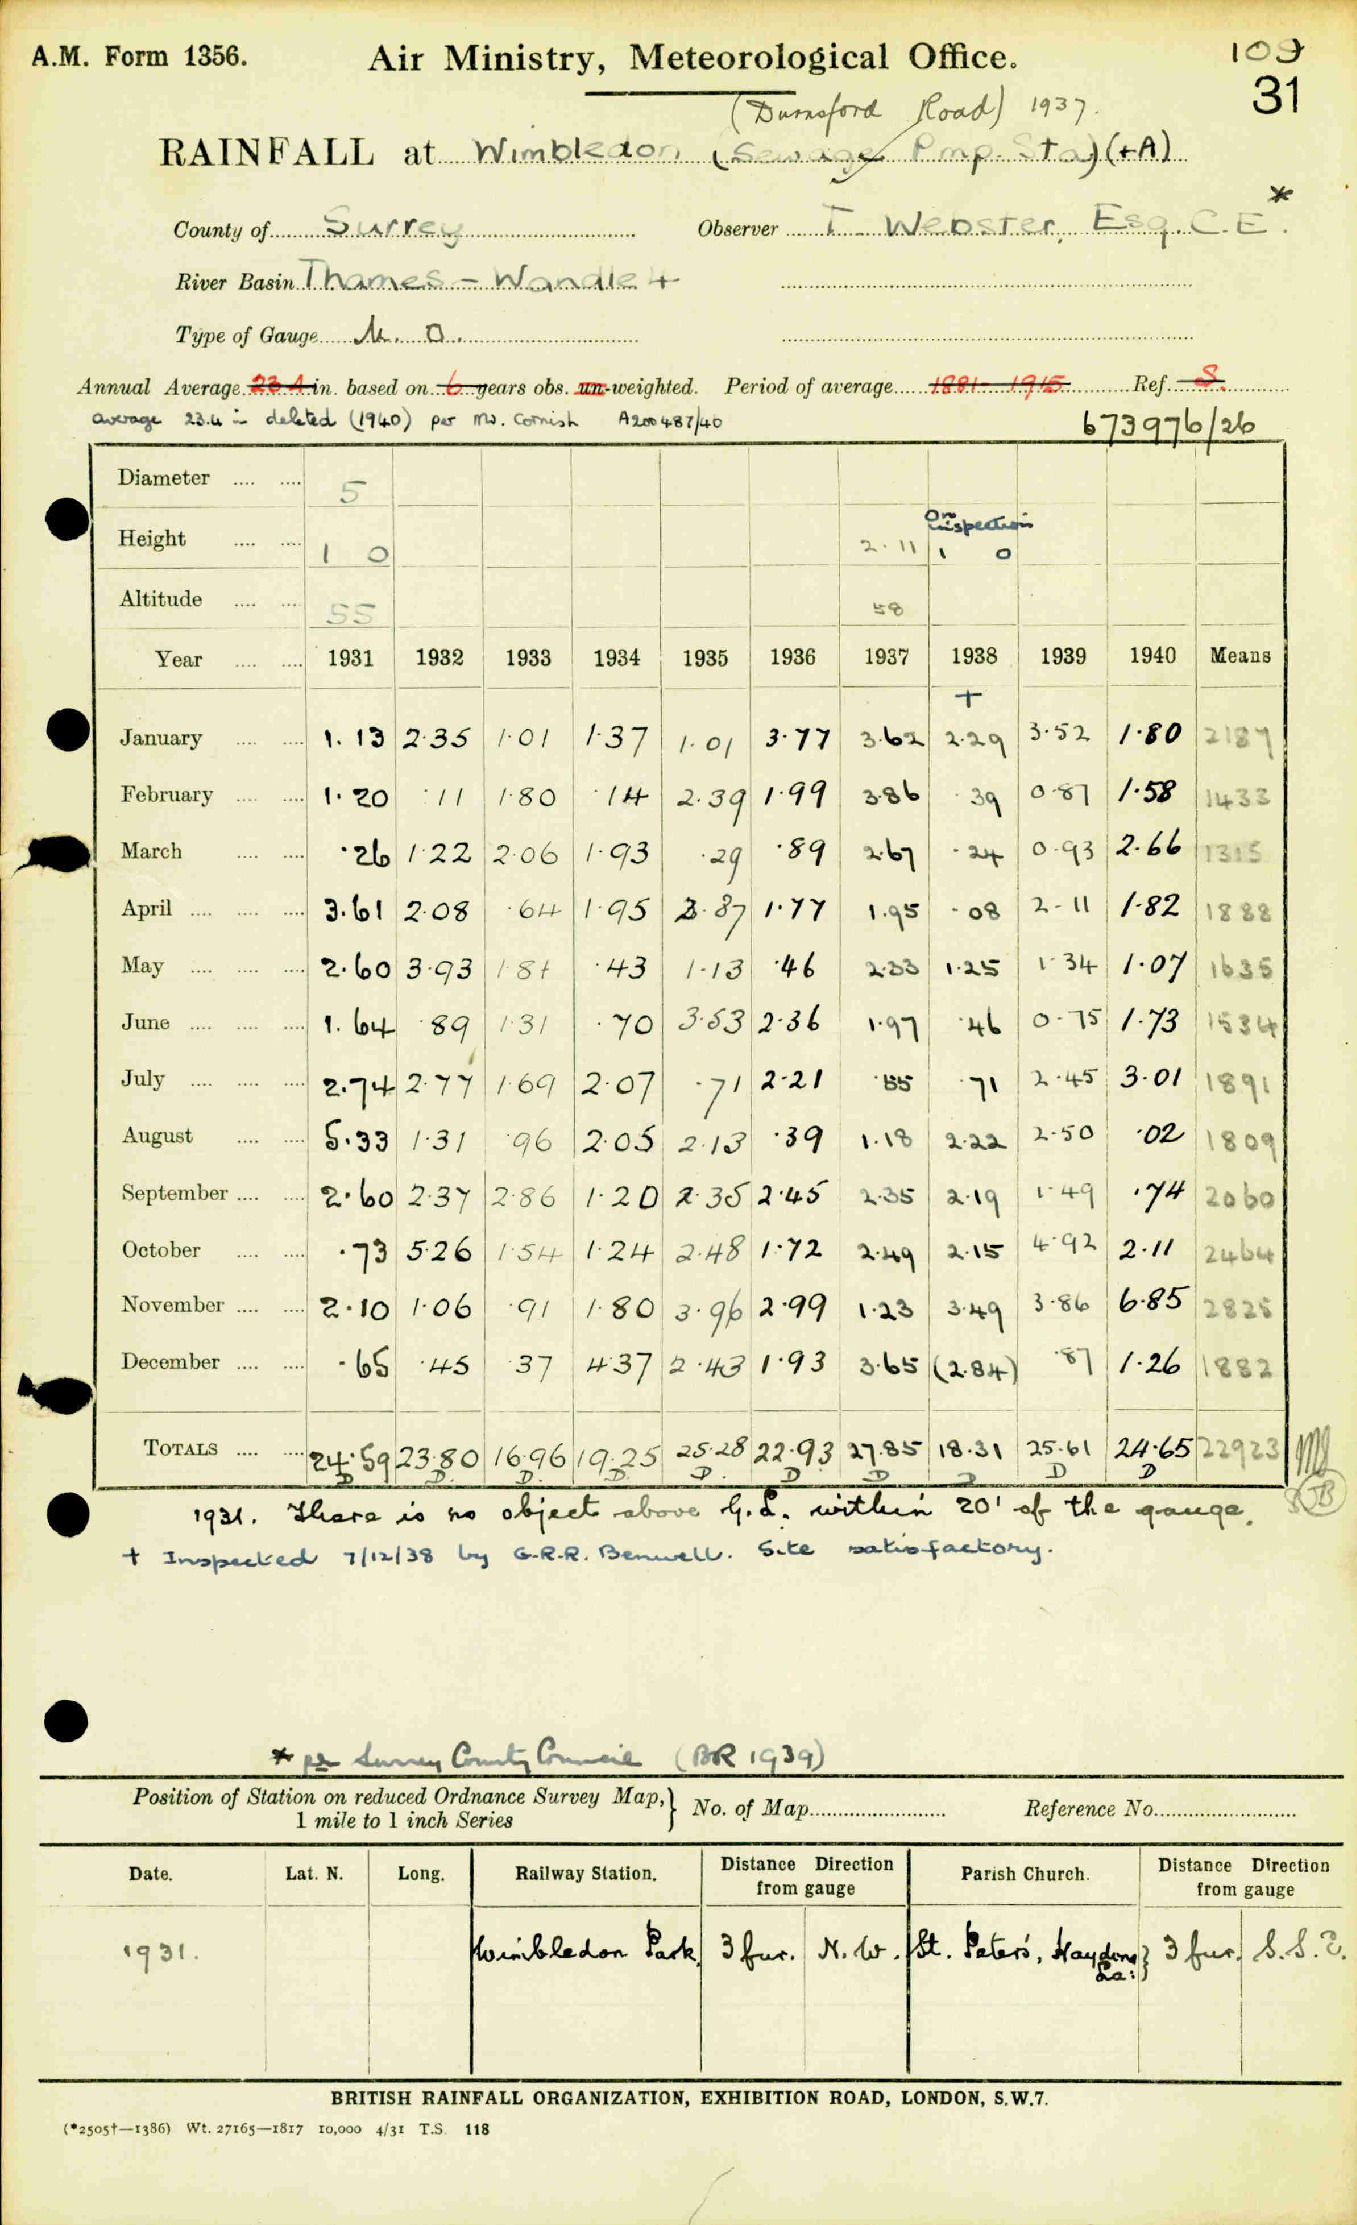 A.M. Form 1356. Air Ministry, Meteorological Office. 109
31
(Durnsford Road) 1937.
RAINFALL at Wimbledon (Sewage Pmp. Sta) (+A)
County of Surrey Observer T. Webster, Esq. C.E. *
River Basin Thames - Wandle 4
Type of Gauge M. O.
Annual Average 23.4 in. based on 6 years obs. un-weighted. Period of average 1881-1915 Ref. S.
average 23.4 in deleted (1940) per Mr. Cornish A200487/40 673976/26
Diameter .... .... 5
Height .... .... 1 0 2.11 On inspection 1 0
Altitude .... .... 55 58
Year .... .... 1931 1932 1933 1934 1935 1936 1937 1938 1939 1940 Means
+
January .... .... 1.13 2.35 1.01 1.37 1.01 3.77 3.62 2.29 3.52 1.80 2187
February .... .... 1.20 .11 1.80 .14 2.39 1.99 3.86 .39 0.87 1.58 1433
March .... .... .26 1.22 2.06 1.93 .29 .89 2.67 .24 0.93 2.66 1315
April .... .... .... 3.61 2.08 .64 1.95 2.87 1.77 1.95 .08 2.11 1.82 1888
May .... .... .... 2.60 3.93 1.81 .43 1.13 .46 2.33 1.25 1.34 1.07 1635
June .... .... .... 1.64 .89 1.31 .70 3.53 2.36 1.97 .46 0.75 1.73 1534
July .... .... .... 2.74 2.77 1.69 2.07 .71 2.21 .55 .71 2.45 3.01 1891
August .... .... 5.33 1.31 .96 2.05 2.13 .39 1.18 2.22 2.50 .02 1809
September .... .... 2.60 2.37 2.86 1.20 2.35 2.45 2.35 2.19 1.49 .74 2060
October .... .... .73 5.26 1.54 1.24 2.48 1.72 2.49 2.15 4.92 2.11 2464
November .... .... 2.10 1.06 .91 1.80 3.96 2.99 1.23 3.49 3.86 6.85 2825
December .... .... .65 .45 .37 4.37 2.43 1.93 3.65 (2.84) .87 1.26 1882
TOTALS .... .... 24.59 23.80 16.96 19.25 25.28 22.93 27.85 18.31 25.61 24.65 22923
D D D D D D D D D D JB
1931. There is no object above G.L. within 20' of the gauge.
+ Inspected 7/12/38 by G.R.R. Benwell. Site satisfactory.
* per Surrey County Council (BR 1939)
Position of Station on reduced Ordnance Survey Map, } No. of Map Reference No.
1 mile to 1 inch Series
Date. Lat. N. Long. Railway Station. Distance Direction from gauge Parish Church. Distance Direction from gauge
1931. Wimbledon Park 3 fur. N.W. St. Peter's, Haydons La: } 3 fur. S.S.E.
BRITISH RAINFALL ORGANIZATION, EXHIBITION ROAD, LONDON, S.W.7.
(*2505†—1386) Wt. 27165—1817 10,000 4/31 T.S. 118